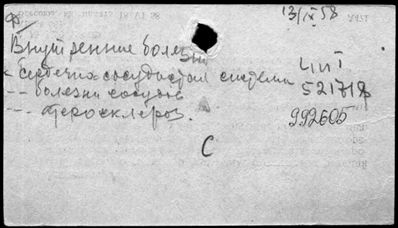 Ф
13/IX 58
Внутренние болезни
Сердечно-сосудистая система
-- болезни сосудов
-- атеросклероз.
521718
992605
С